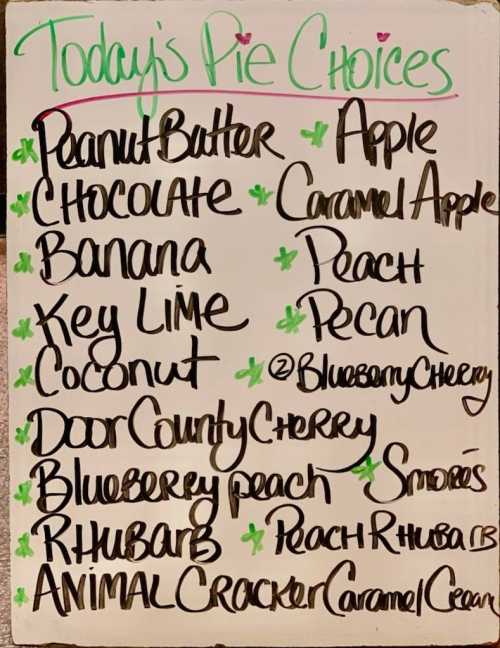 Today's Pie Choices
Peanut Butter
Apple
Chocolate
Caramel Apple
Banana
Peach
Key Lime
Pecan
Coconut
② Blueberry Cherry
Door County Cherry
Blueberry peach
Smores
Rhubarb
Peach Rhubarb
Animal Cracker Caramel Cream